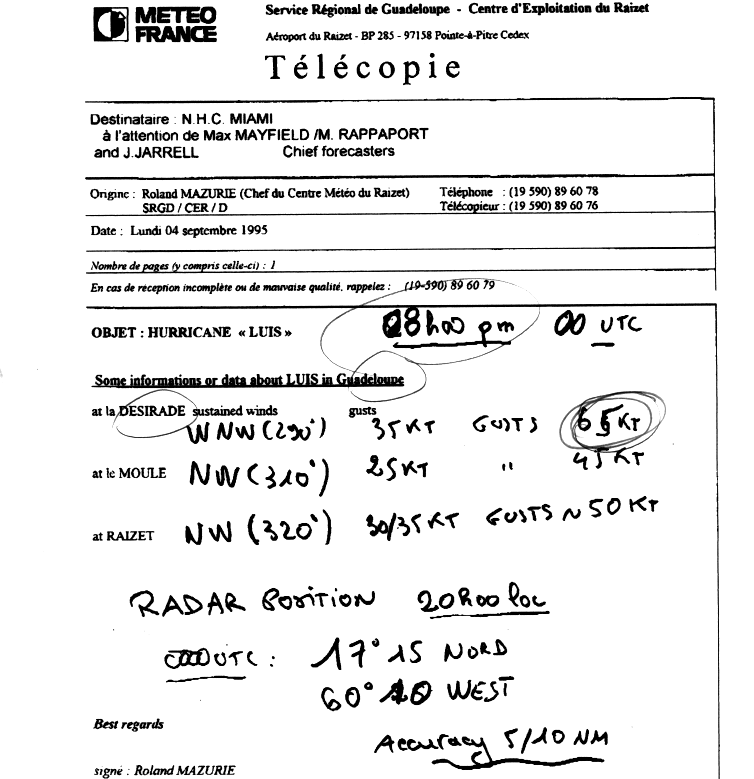 METEO
FRANCE
Service Régional de Guadeloupe - Centre d'Exploitation du Raizet
Aéroport du Raizet - BP 285 - 97158 Pointe-à-Pitre Cedex
Télécopie
Destinataire : N.H.C. MIAMI
à l'attention de Max MAYFIELD /M. RAPPAPORT
and J.JARRELL Chief forecasters
Origine : Roland MAZURIE (Chef du Centre Météo du Raizet) Téléphone : (19 590) 89 60 78
SRGD / CER / D Télécopieur : (19 590) 89 60 76
Date : Lundi 04 septembre 1995
Nombre de pages (y compris celle-ci) : 1
En cas de réception incomplète ou de mauvaise qualité, rappelez : (19-590) 89 60 79
OBJET : HURRICANE « LUIS » 08h00 pm 00 UTC
Some informations or data about LUIS in Guadeloupe
at la DESIRADE sustained winds gusts
WNW (290°) 35 KT GUSTS 65 KT
at le MOULE NW (310°) 25 KT " 45 KT
at RAIZET NW (320°) 30/35 KT GUSTS ~ 50 KT
RADAR POSITION 20h00 loc
UTC : 17° 15 NORD
60° 20 WEST
Best regards
Accuracy 5/10 NM
signé : Roland MAZURIE